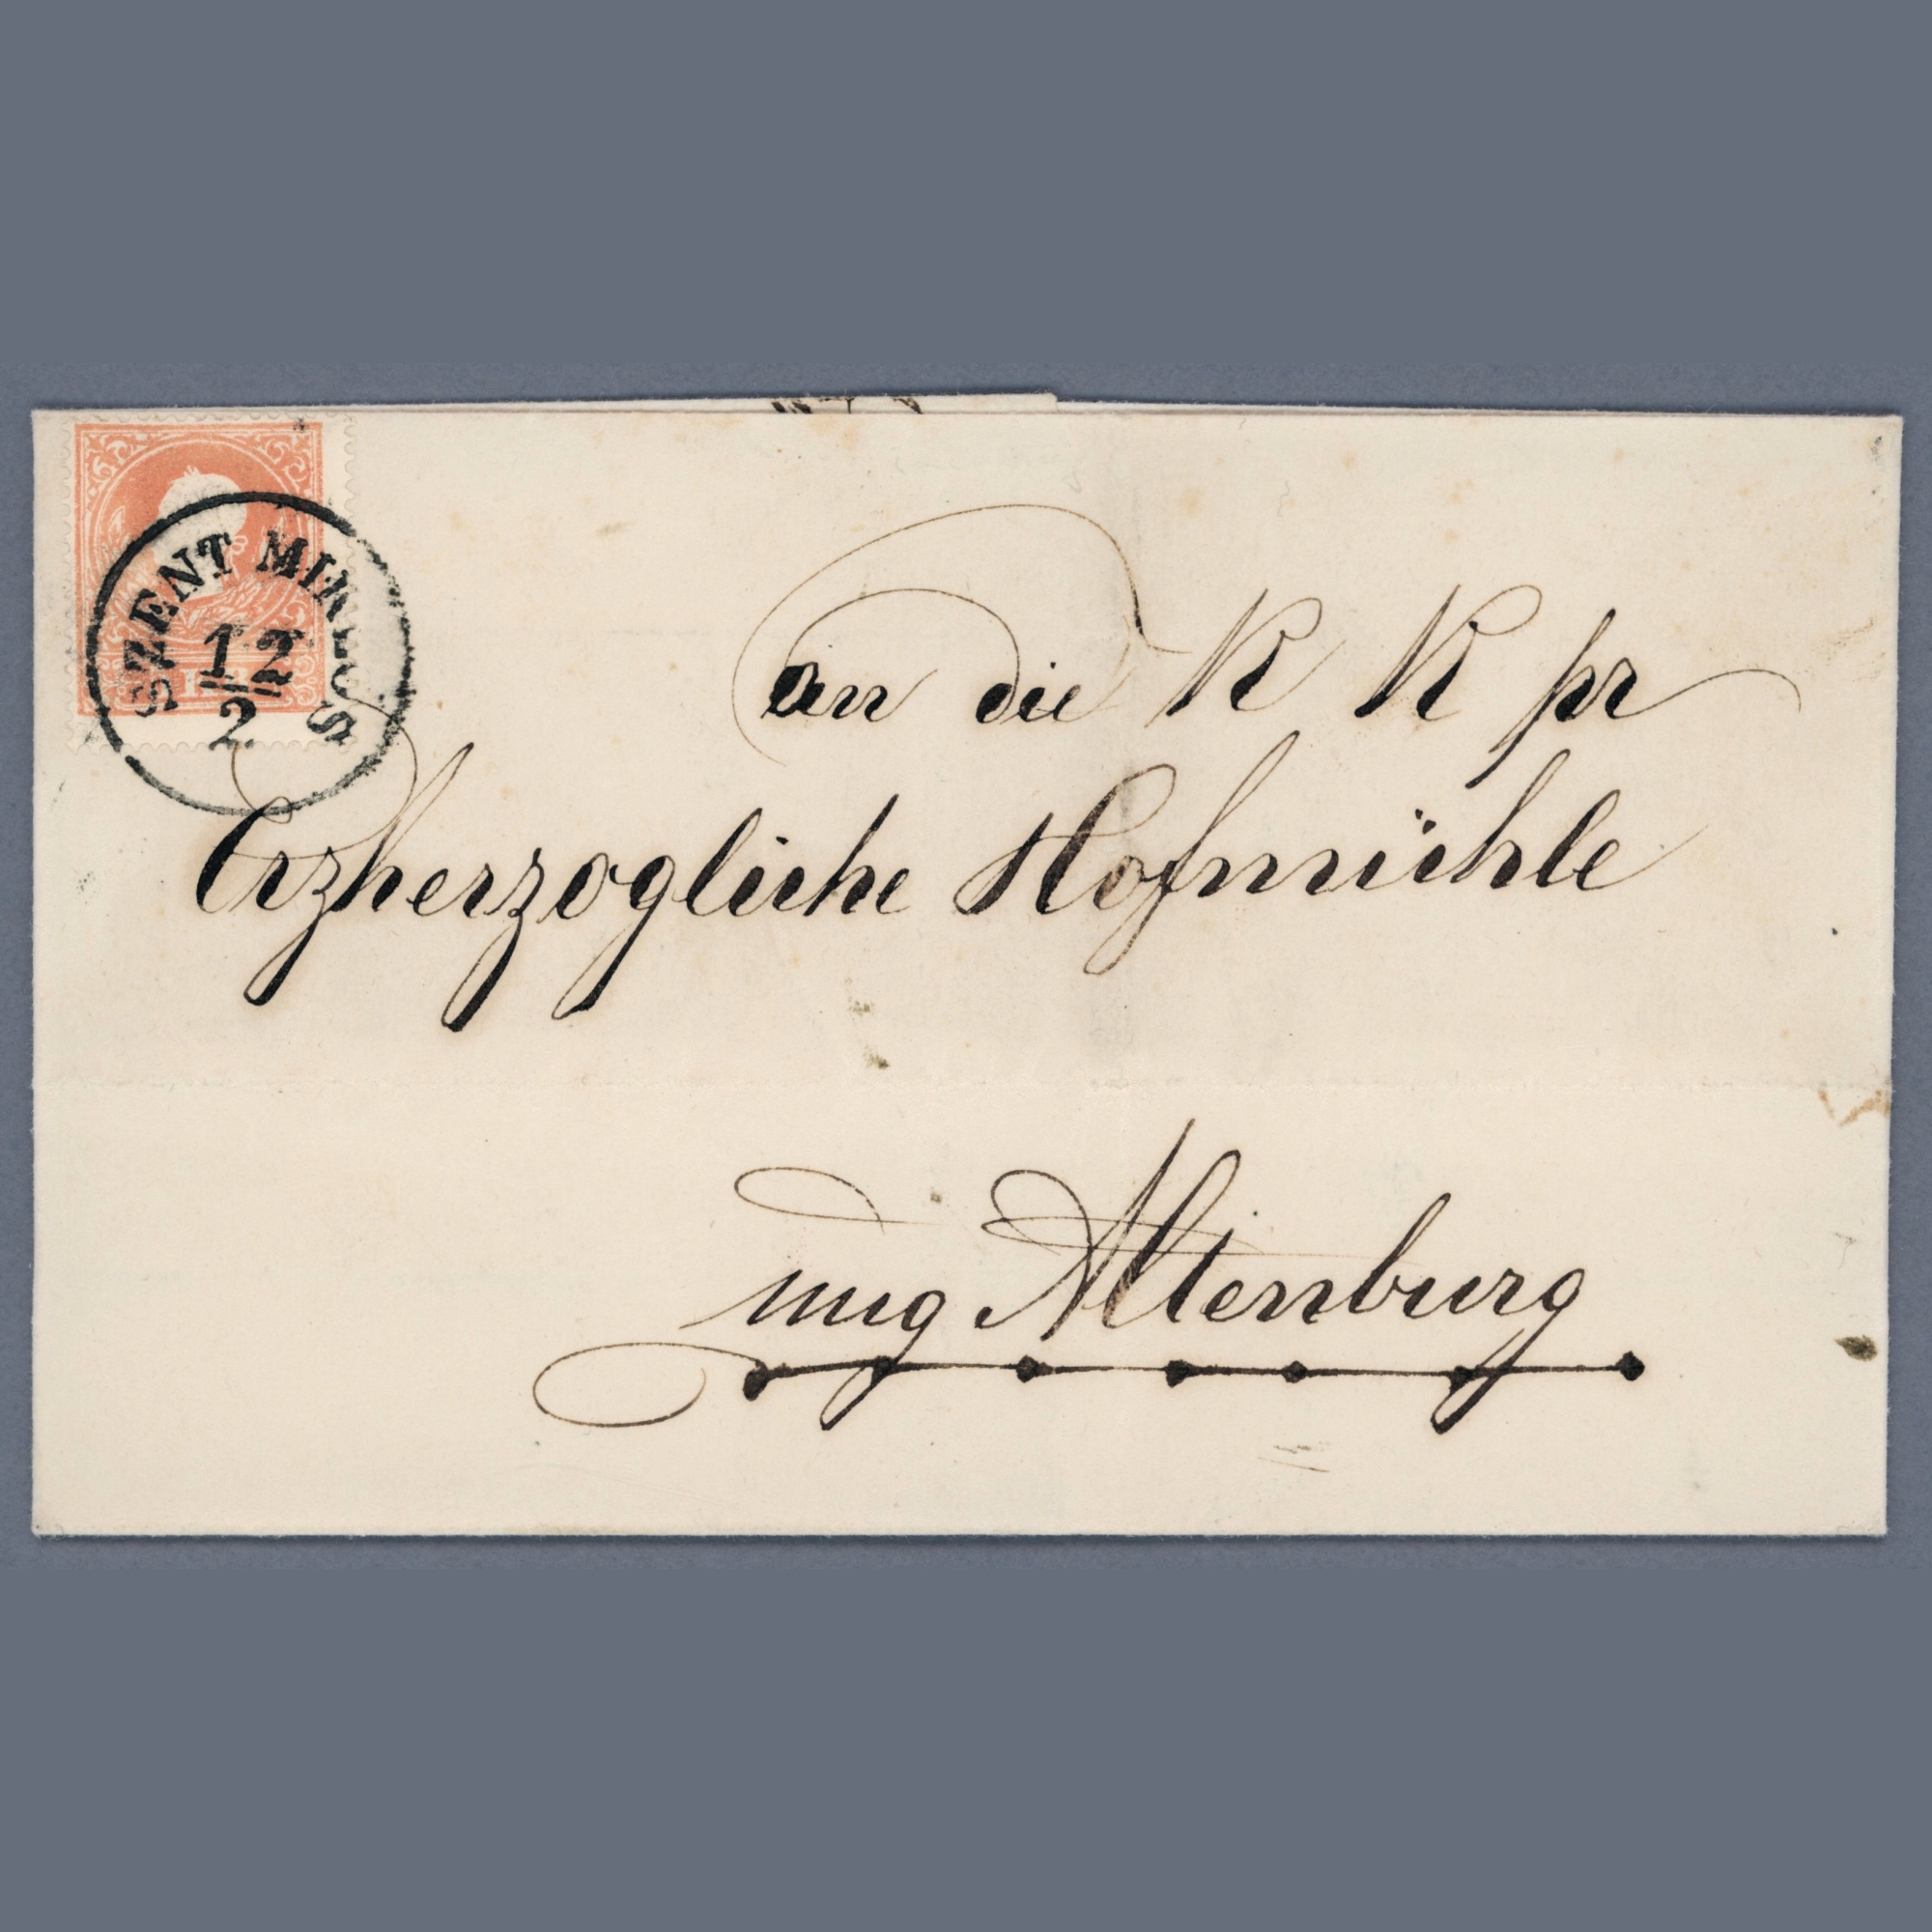 SZENT MIKLOS
12
2.
an die K K pr
Erzherzogliche Hofmühle
ung Altenburg